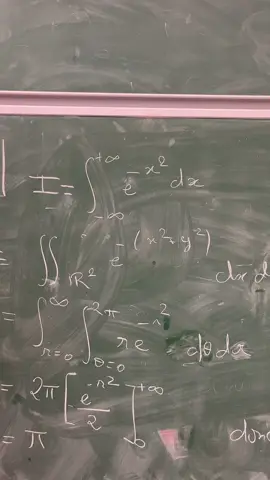 I = ∫_{-∞}^{+∞} e^{-x²} dx
= ∬_{ℝ²} e^{-(x²+y²)} dx d
= ∫_{r=0}^{∞} ∫_{θ=0}^{2π} r e^{-r²} dθ dr
= 2π [ e^{-r²} / 2 ]_{0}^{+∞}
= π donc